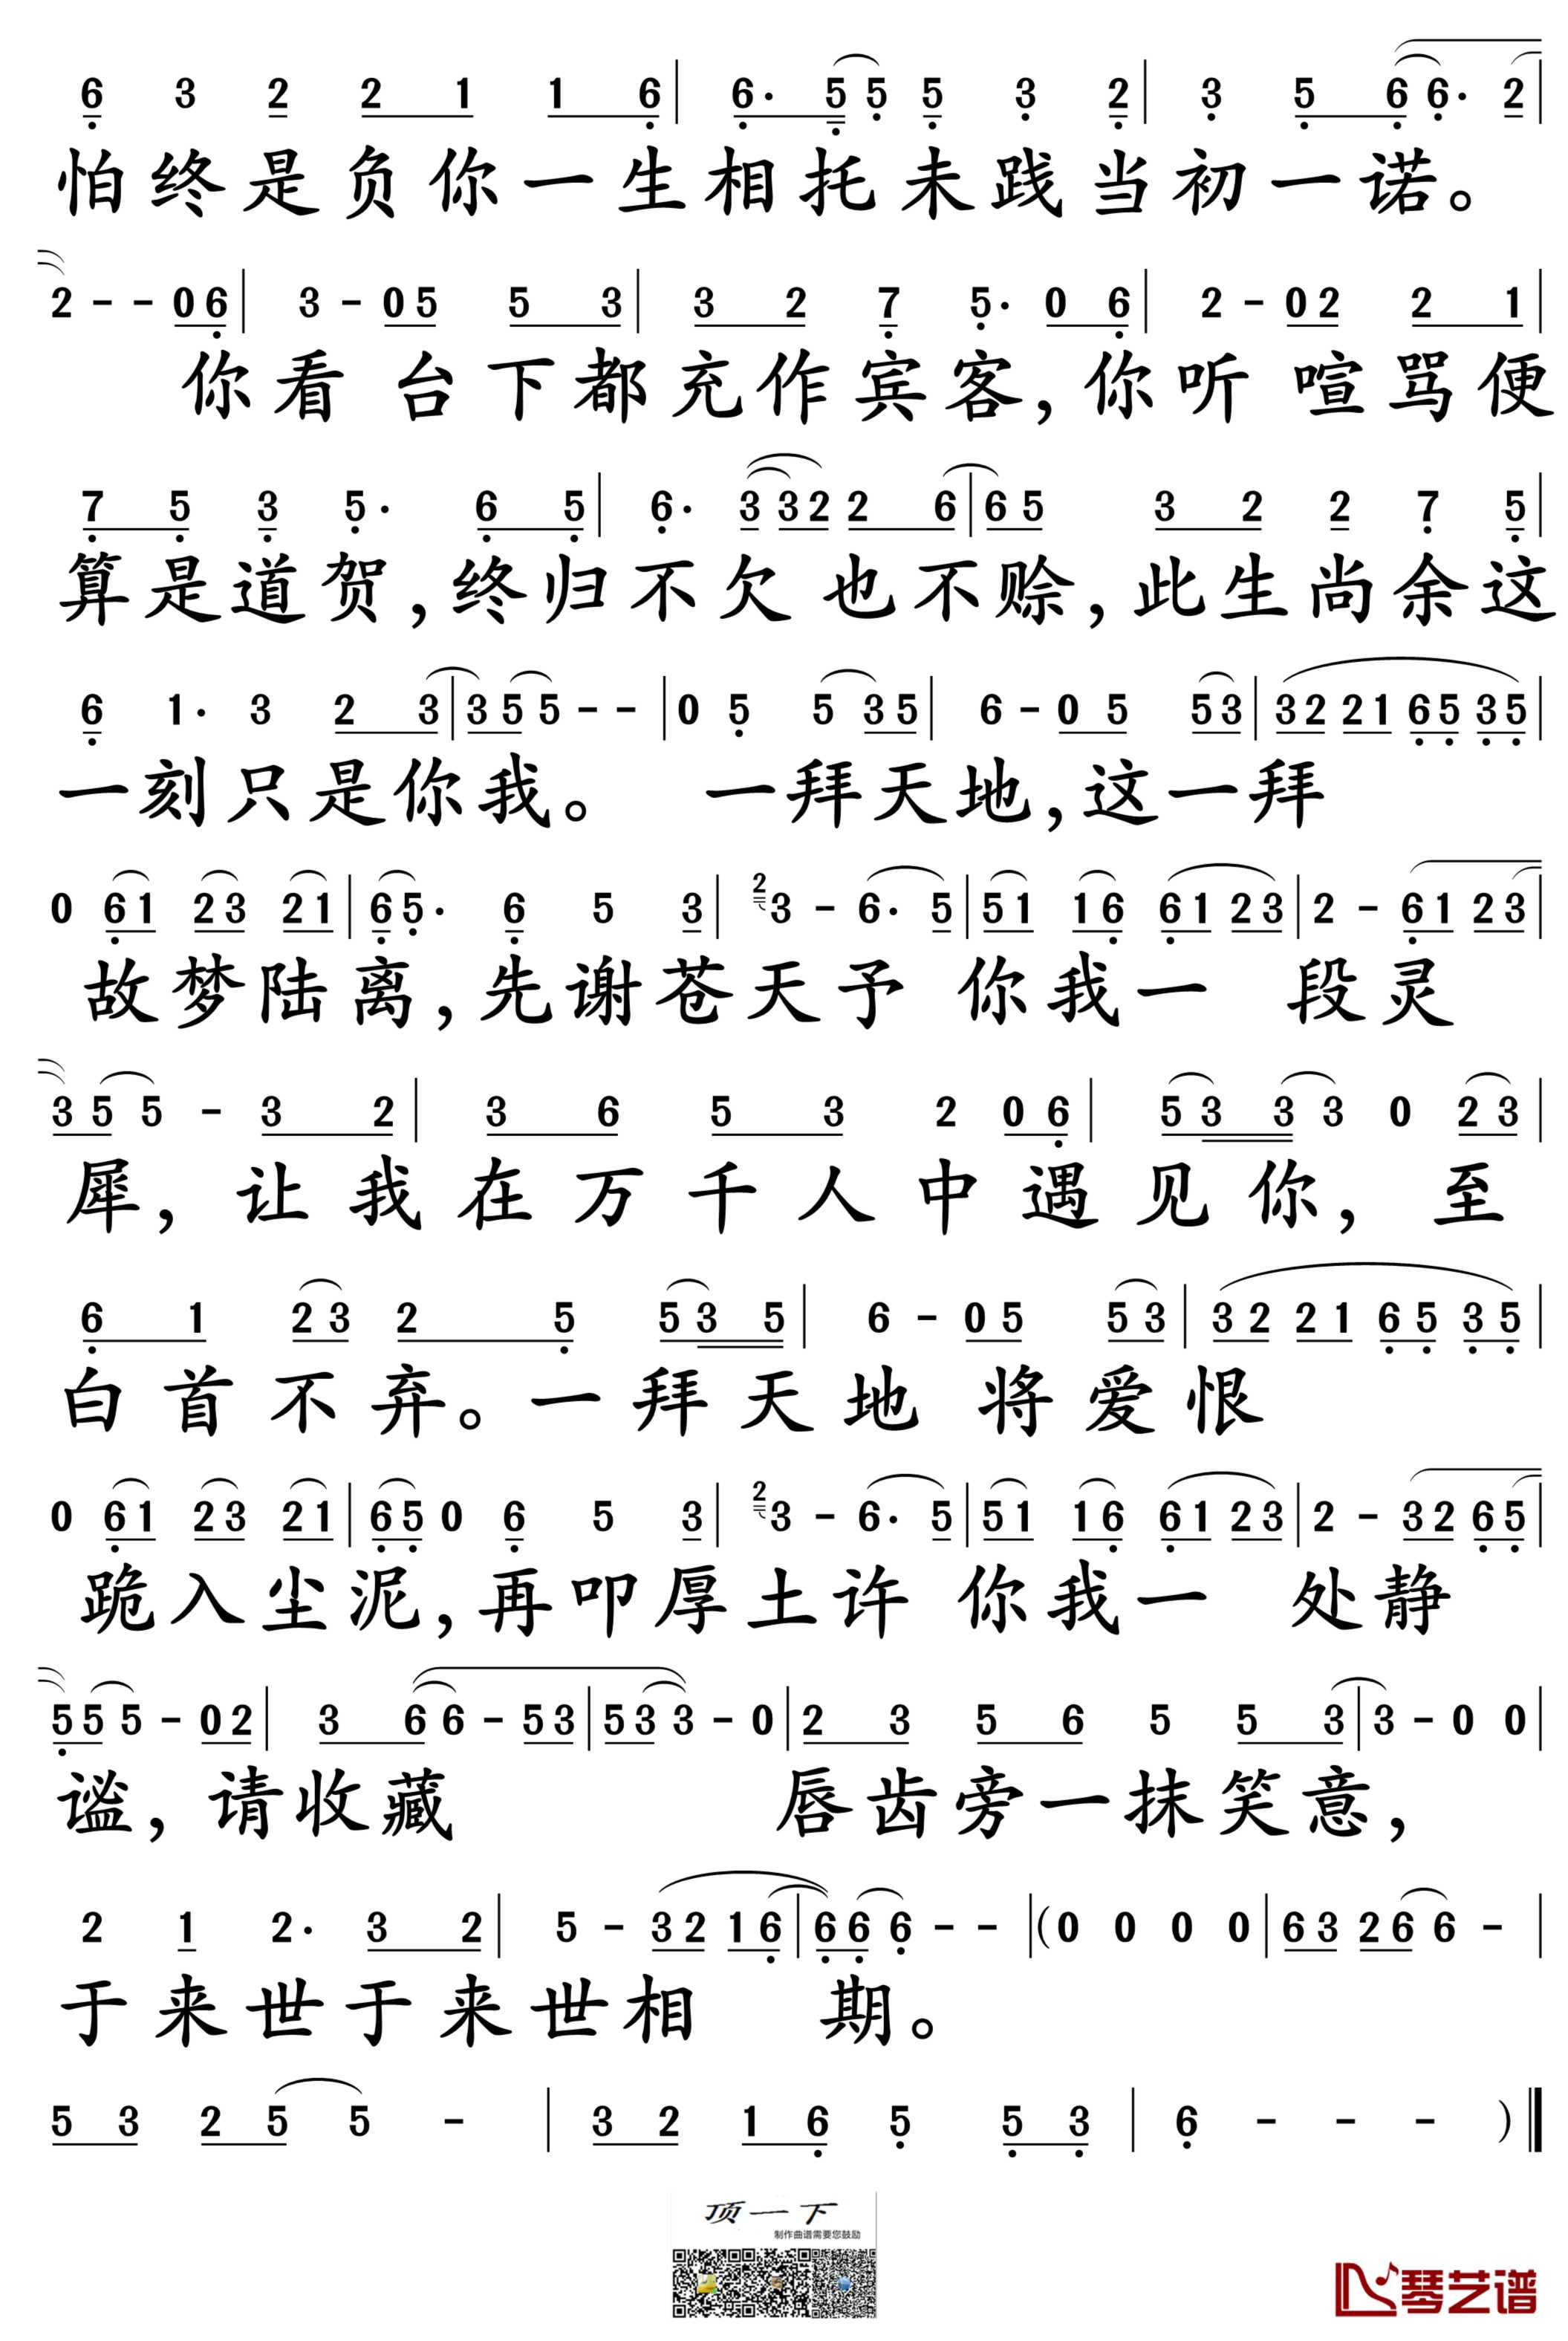 6 3 2 2 1 1 6 | 6· 5 5 5 3 2 | 3 5 6 6· 2 |
怕终是负你一生相托未践当初一诺。
2 - - 0 6 | 3 - 0 5 5 3 | 3 2 7 5· 0 6 | 2 - 0 2 2 1 |
你看 台下都充作宾客,你听 喧骂便
7 5 3 5· 6 5 | 6· 3 3 2 2 6 | 6 5 3 2 2 7 5 |
算是道贺,终归不欠 也不赊,此生尚余这
6 1· 3 2 3 | 3 5 5 - - | 0 5 5 3 5 | 6 - 0 5 5 3 | 3 2 2 1 6 5 3 5 |
一刻只是你我。 一拜天地,这一拜
0 6 1 2 3 2 1 | 6 5· 6 5 3 | 2 3 - 6· 5 | 5 1 1 6 6 1 2 3 | 2 - 6 1 2 3 |
故梦陆离,先谢苍天予 你我一 段灵
3 5 5 - 3 2 | 3 6 5 3 2 0 6 | 5 3 3 3 0 2 3 |
犀,让我在万千人中遇见你,至
6 1 2 3 2 5 5 3 5 | 6 - 0 5 5 3 | 3 2 2 1 6 5 3 5 |
白首不弃。一拜天地 将爱恨
0 6 1 2 3 2 1 | 6 5 0 6 5 3 | 2 3 - 6· 5 | 5 1 1 6 6 1 2 3 | 2 - 3 2 6 5 |
跪入尘泥,再叩厚土许 你我一 处静
5 5 5 - 0 2 | 3 6 6 - 5 3 | 5 3 3 - 0 | 2 3 5 6 5 5 3 | 3 - 0 0 |
谧,请收藏 唇齿旁一抹笑意,
2 1 2· 3 2 | 5 - 3 2 1 6 | 6 6 6 - - | (0 0 0 0 | 6 3 2 6 6 - |
于来世于来世相 期。
5 3 2 5 5 - | 3 2 1 6 5 5 3 | 6 - - - )
顶一下
制作曲谱需要您鼓励
琴艺谱